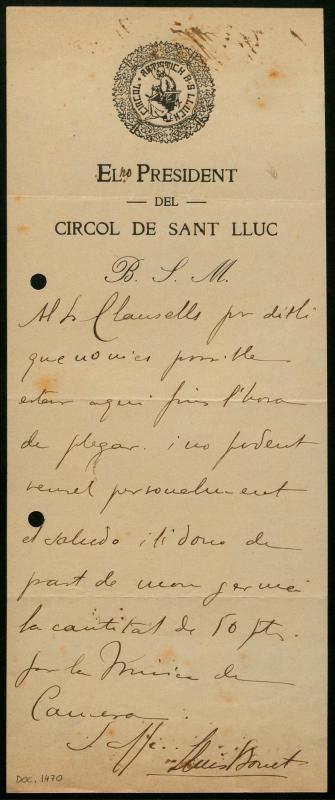 CIRCOL ARTISTICH B. S. LLUCH
EL no PRESIDENT
DEL
CIRCOL DE SANT LLUC
B. S. M.
Al Sr Clausells per dirli
que no m'es possible
estar aqui fins l'hora
de plegar. i no podent
veurel personalment
el saludo i li dono de
part de mon germá
la cantitat de 50 pts.
per la Musica de
Camera.
Lluis Bonet
DOC. 1470